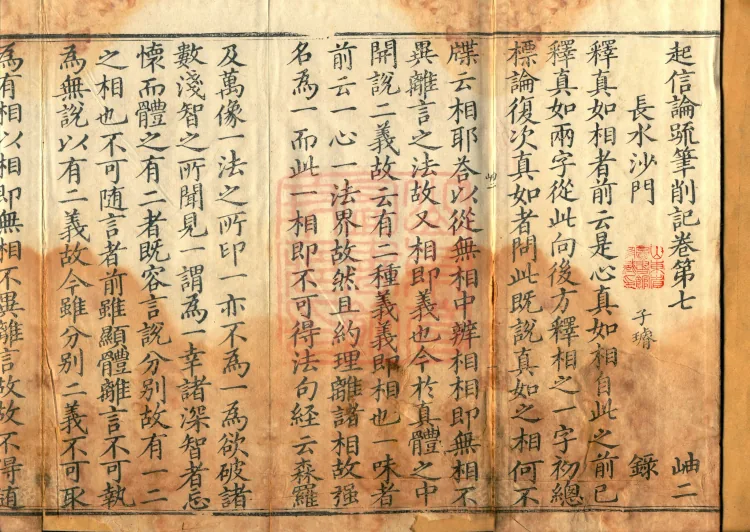 起信論䟽筆削記卷第七 岫二
長水沙門 子璿 錄
釋真如相者前云是心真如相自此之前已
釋真如兩字從此向後方釋相之一字初總
標論復次真如者問此既說真如之相何不
牒云相耶荅以從無相中辨相相即無相不
異離言之法故又相即義也今於真體之中
開說二義故云有二種義義即相也一味者
前云一心一法界故然且約理離諸相故強
名為一而此一相即不可得法句經云森羅
及萬像一法之所印一亦不為一為欲破諸
數淺智之所聞見一謂為一幸諸深智者忘
懷而體之有二者既容言說分別故有一二
之相也不可隨言者前雖顯體離言不可執
為無說以有二義故今雖分別二義不可取
為有相以相即無相不異離言故故不得道